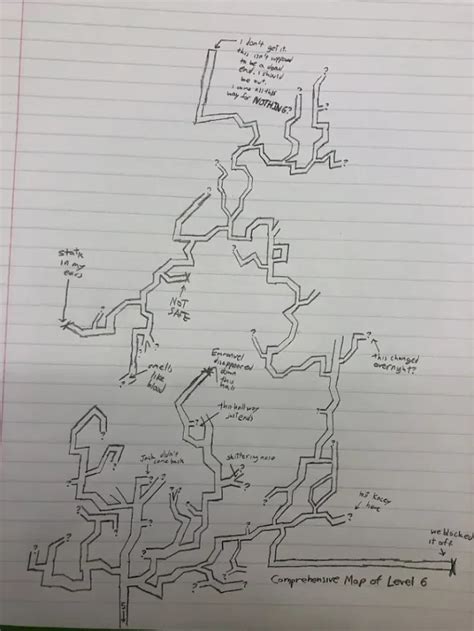 i don't get it.
this isn't supposed
to be a dead
end. i should
be out.
i came all this
way for NOTHING?
?
?
?
?
?
?
?
static
in my
ears
NOT
SAFE
?
?
smells
like
blood
?
?
this changed
overnight??
Emmanuel
disappeared
down
this
hall
?
this hallway
just ends
Jack didn't
come back
skittering noise
?
?
?
?
?
?
?
?
here
we blocked
it off
Comprehensive Map of Level 6